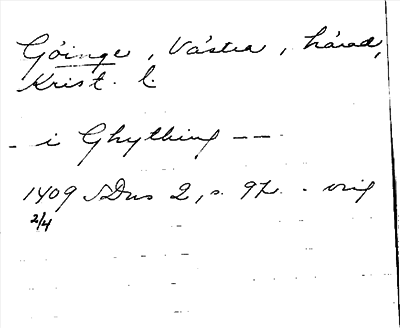 Göinge, Västra, härad,
Krist. l.
- i Ghything --
1409 SDns 2, s. 92. - orig
2/4